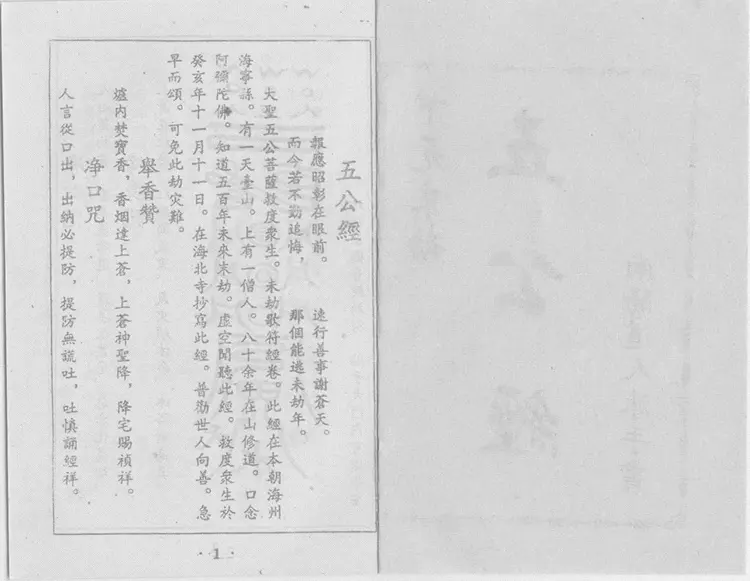 五公經
報應昭彰在眼前。 速行善事謝蒼天。
而今若不勤追悔， 那個能逃末劫年。
大聖五公菩薩救度眾生。末劫歌符經卷。此經在本朝海州
海寧縣。有一天臺山。上有一僧人。八十余年在山修道。口念
阿彌陀佛。知道五百年未來末劫。虛空聞聽此經。救度眾生於
癸亥年十一月十一日。在海北寺抄寫此經。普勸世人向善。急
早而頌。可免此劫灾難。
舉香贊
爐内焚寶香，香烟達上蒼，上蒼神聖降，降宅賜禎祥。
净口咒
人言從口出，出納必提防，提防無謊吐，吐慎誦經祥。
·1·